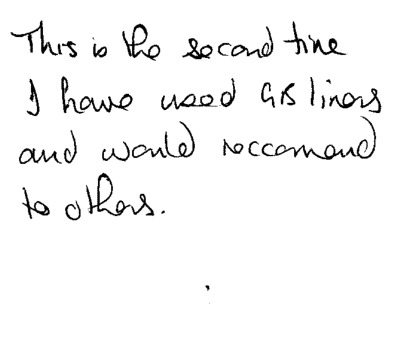 This is the second time
I have used GB liners
and would reccomend
to others.